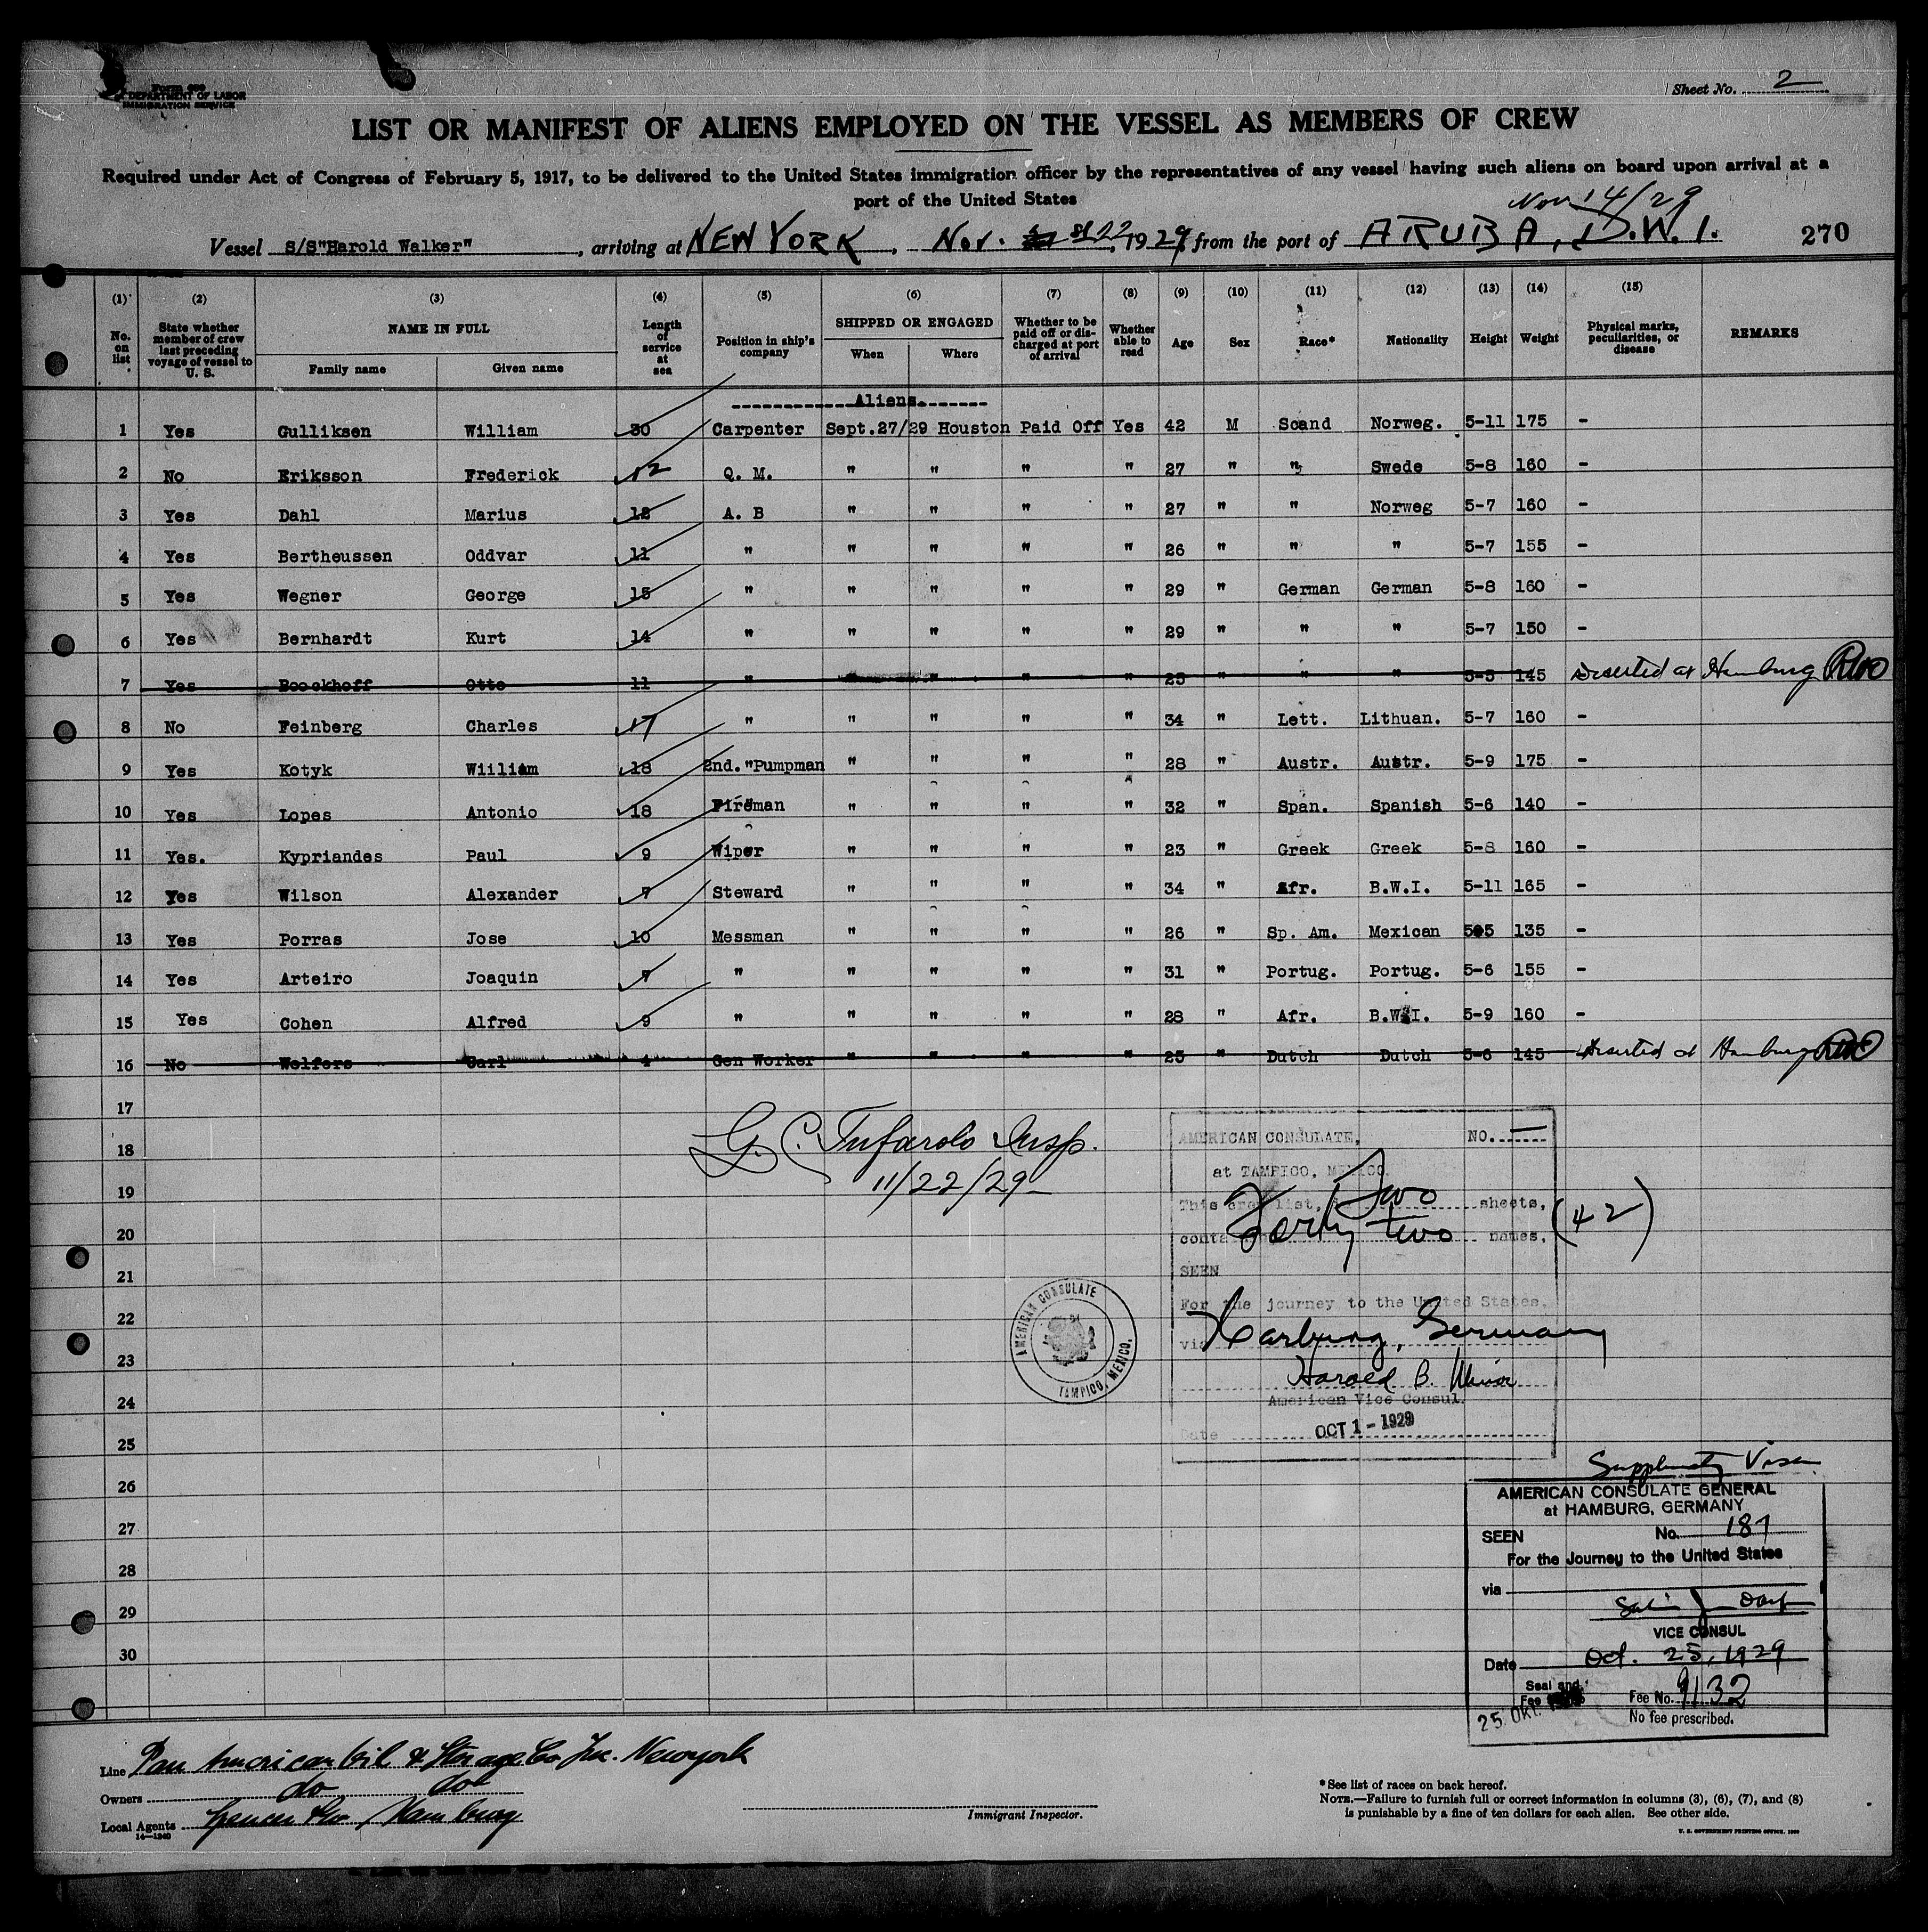 Form 689
DEPARTMENT OF LABOR
IMMIGRATION SERVICE
Sheet No. 2
LIST OR MANIFEST OF ALIENS EMPLOYED ON THE VESSEL AS MEMBERS OF CREW
Required under Act of Congress of February 5, 1917, to be delivered to the United States immigration officer by the representatives of any vessel having such aliens on board upon arrival at a
port of the United States
Nov 14/29
Vessel S/S"Harold Walker", arriving at NEW YORK, Nov. 22, 1929, from the port of ARUBA, D.W.I. 270
(1) (2) (3) (4) (5) (6) (7) (8) (9) (10) (11) (12) (13) (14) (15)
No. on list State whether member of crew last preceding voyage of vessel to U. S. NAME IN FULL Family name Given name Length of service at sea Position in ship's company SHIPPED OR ENGAGED When Where Whether to be paid off or discharged at port of arrival Whether able to read Age Sex Race* Nationality Height Weight Physical marks, peculiarities, or disease REMARKS
Aliens.
1 Yes Gulliksen William 30 Carpenter Sept.27/29 Houston Paid Off Yes 42 M Scand Norweg. 5-11 175 -
2 No Eriksson Frederick 12 Q. M. " " " " 27 " " Swede 5-8 160 -
3 Yes Dahl Marius 12 A. B " " " " 27 " " Norweg 5-7 160 -
4 Yes Bertheussen Oddvar 11 " " " " " 26 " " " 5-7 155 -
5 Yes Wegner George 15 " " " " " 29 " German German 5-8 160 -
6 Yes Bernhardt Kurt 14 " " " " " 29 " " " 5-7 150 -
7 Yes Boockhoff Otto 11 " " " " " 25 " " " 5-5 145 Deserted at Hamburg
8 No Feinberg Charles 17 " " " " " 34 " Lett. Lithuan. 5-7 160 -
9 Yes Kotyk Wiiliam 18 2nd. "Pumpman " " " " 28 " Austr. Austr. 5-9 175 -
10 Yes Lopes Antonio 18 Fireman " " " " 32 " Span. Spanish 5-6 140 -
11 Yes. Kypriandes Paul 9 Wiper " " " " 23 " Greek Greek 5-8 160 -
12 Yes Wilson Alexander 7 Steward " " " " 34 " Afr. B.W.I. 5-11 165 -
13 Yes Porras Jose 10 Messman " " " " 26 " Sp. Am. Mexican 5-5 135 -
14 Yes Arteiro Joaquin 7 " " " " " 31 " Portug. Portug. 5-6 155 -
15 Yes Cohen Alfred 9 " " " " " 28 " Afr. B.W.I. 5-9 160 -
16 No Wolfers Carl 4 Gen Worker " " " " 25 " Dutch Dutch 5-6 145 Deserted at Hamburg
17
18
19
20
21
22
23
24
25
26
27
28
29
30
G. C. Tufarolo Insp.
11/22/29
AMERICAN CONSULATE, NO. —
at TAMPICO, MEXICO.
This crew list, Two sheets,
conta Forty two names, (42)
SEEN
For the journey to the United States.
via Harburg, Germany
Harold B. Minor
American Vice Consul.
Date OCT 1 - 1929
AMERICAN CONSULATE
TAMPICO, MEXICO.
Supplmty Visa
AMERICAN CONSULATE GENERAL
at HAMBURG, GERMANY
SEEN No. 187
For the Journey to the United States
via
VICE CONSUL
Date Oct. 25, 1929
Seal and
Fee
25. OKT.
Fee No. 9132
No fee prescribed.
Line Pan American Oil & Storage Co Inc. Newyork
Owners do do
Local Agents Hamburg
14—1240
Immigrant Inspector.
*See list of races on back hereof.
NOTE.—Failure to furnish full or correct information in columns (3), (6), (7), and (8)
is punishable by a fine of ten dollars for each alien. See other side.
U. S. GOVERNMENT PRINTING OFFICE